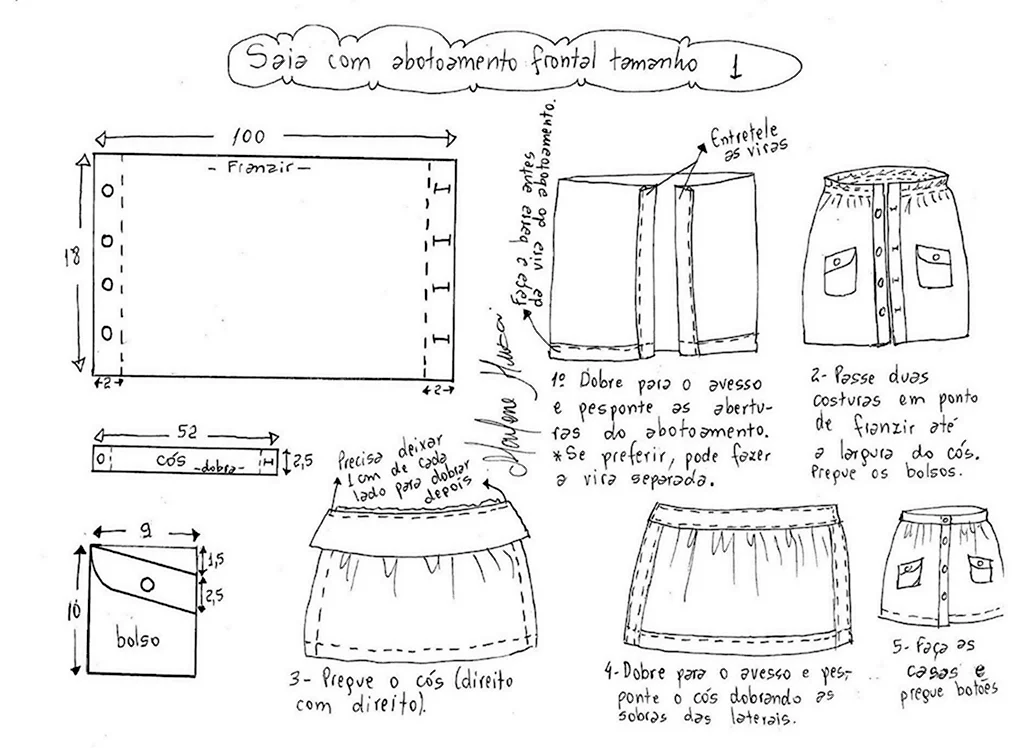 Saia com abotoamento frontal tamanho 1
100
- Franzir -
18
2
2
52
cós - dobra -
2,5
9
1,5
2,5
10
bolso
Faça a barra antes
da vira do abotoamento.
Entretele
as viras
1º Dobre para o avesso
e pesponte as abertu-
ras do abotoamento.
*Se preferir, pode fazer
a vira separada.
2- Passe duas
costuras em ponto
de franzir até
a largura do cós.
Pregue os bolsos.
Precisa deixar
1 cm de cada
lado para dobrar
depois
3- Pregue o cós (direito
com direito).
4- Dobre para o avesso e pes-
ponte o cós dobrando as
sobras das laterais.
5- Faça as
casas e
pregue botões
Marlene